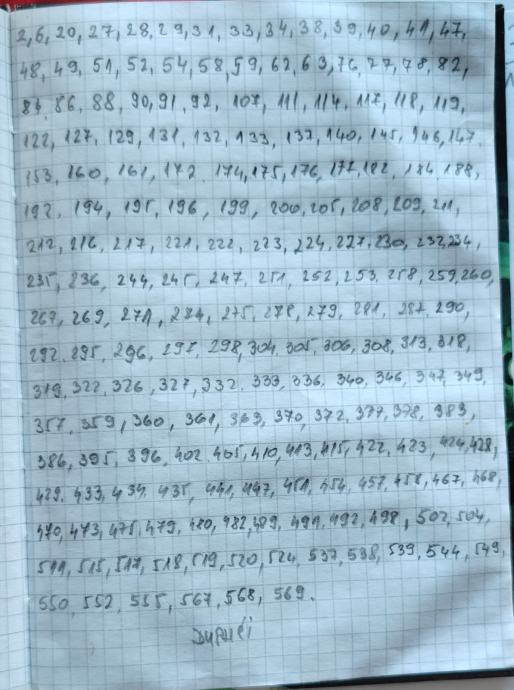 2, 6, 20, 27, 28, 29, 31, 33, 34, 38, 39, 40, 41, 47,
48, 49, 51, 52, 54, 58, 59, 62, 63, 76, 77, 78, 82,
84, 86, 88, 90, 91, 92, 107, 111, 114, 117, 118, 119,
122, 127, 129, 131, 132, 133, 137, 140, 145, 146, 147,
153, 160, 161, 172, 174, 175, 176, 177, 182, 184, 188,
192, 194, 195, 196, 199, 200, 205, 208, 209, 211,
212, 216, 217, 221, 222, 223, 224, 227, 230, 232, 234,
235, 236, 244, 245, 247, 251, 252, 253, 258, 259, 260,
267, 269, 271, 274, 275, 278, 279, 281, 287, 290,
292, 295, 296, 297, 298, 304, 305, 306, 308, 313, 318,
319, 322, 326, 327, 332, 333, 336, 340, 346, 347, 349,
357, 359, 360, 361, 363, 370, 372, 377, 378, 383,
386, 395, 396, 402, 405, 410, 413, 415, 422, 423, 424, 428,
429, 433, 434, 435, 441, 447, 451, 454, 457, 458, 467, 468,
470, 473, 475, 479, 480, 482, 489, 491, 492, 498, 502, 504,
511, 515, 517, 518, 519, 520, 524, 537, 538, 539, 544, 549,
550, 552, 555, 567, 568, 569.